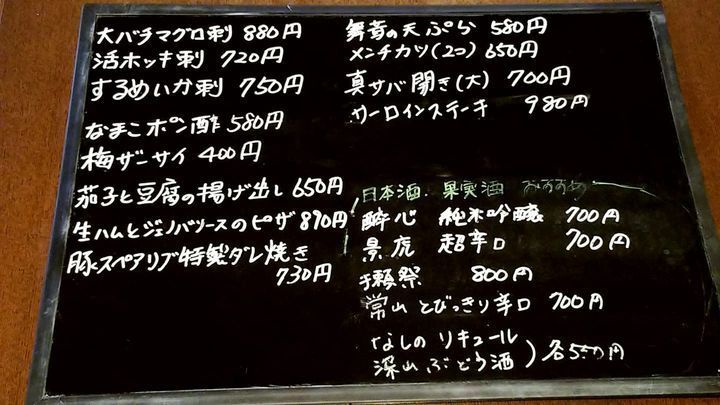 大バチマグロ刺 880円
活ホッキ刺 720円
するめいか刺 750円
なまこポン酢 580円
梅ザーサイ 400円
茄子と豆腐の揚げ出し 650円
生ハムとジェノバソースのピザ 890円
豚スペアリブ特製ダレ焼き
730円
舞茸の天ぷら 580円
メンチカツ(2コ) 650円
真サバ開き(大) 700円
サーロインステーキ 980円
日本酒・果実酒 おすすめ
酔心 純米吟醸 700円
景虎 超辛口 700円
獺祭 800円
常山 とびっきり辛口 700円
なしのリキュール
深山ぶどう酒 ) 各550円